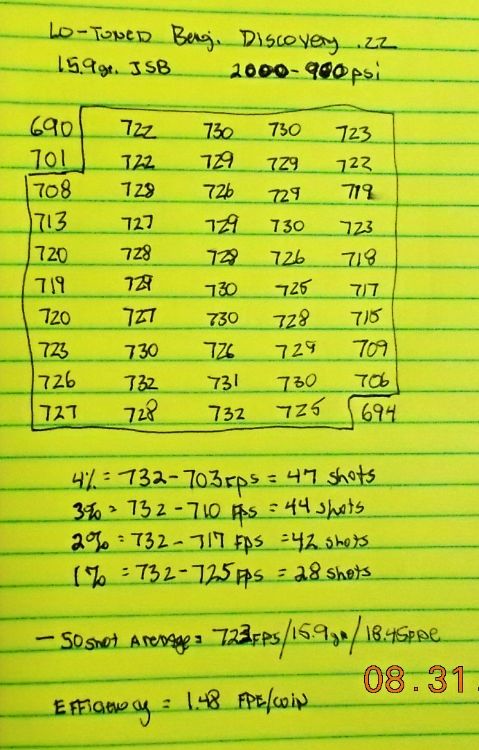 LO-TUNED Benj. Discovery .22
15.9gr. JSB 2000-900psi
690 722 730 730 723
701 722 729 729 722
708 728 726 729 719
713 727 729 730 723
720 728 728 726 718
719 729 730 725 717
720 727 730 728 715
723 730 726 729 709
726 732 731 730 706
727 728 732 725 694
4% = 732-703FPS = 47 shots
3% = 732-710 FPS = 44 shots
2% = 732-717 FPS = 42 shots
1% = 732-725FPS = 28 shots
- 50 shot Average = 723FPS/15.9gr/18.45FPE
EFFiciency = 1.48 FPE/coin
08.31.